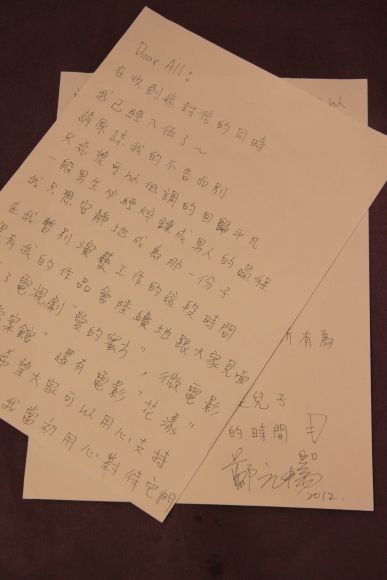 Dear All:
在收到這封信的同時
我已經入伍了~
請原諒我的不告而別
只希望可以低調的回歸平凡
一般男生必經焠鍊成男人的過程
我只想安靜地成為那一份子
在我暫別演藝工作的這段時間
有我的作品會陸續地跟大家見面
了電視劇"愛的蜜方"，微電影
窩案館"還有電影"花漾"
希望大家可以用心支持
我當初用心對待它們
所有為
兒子
的時間
2012.